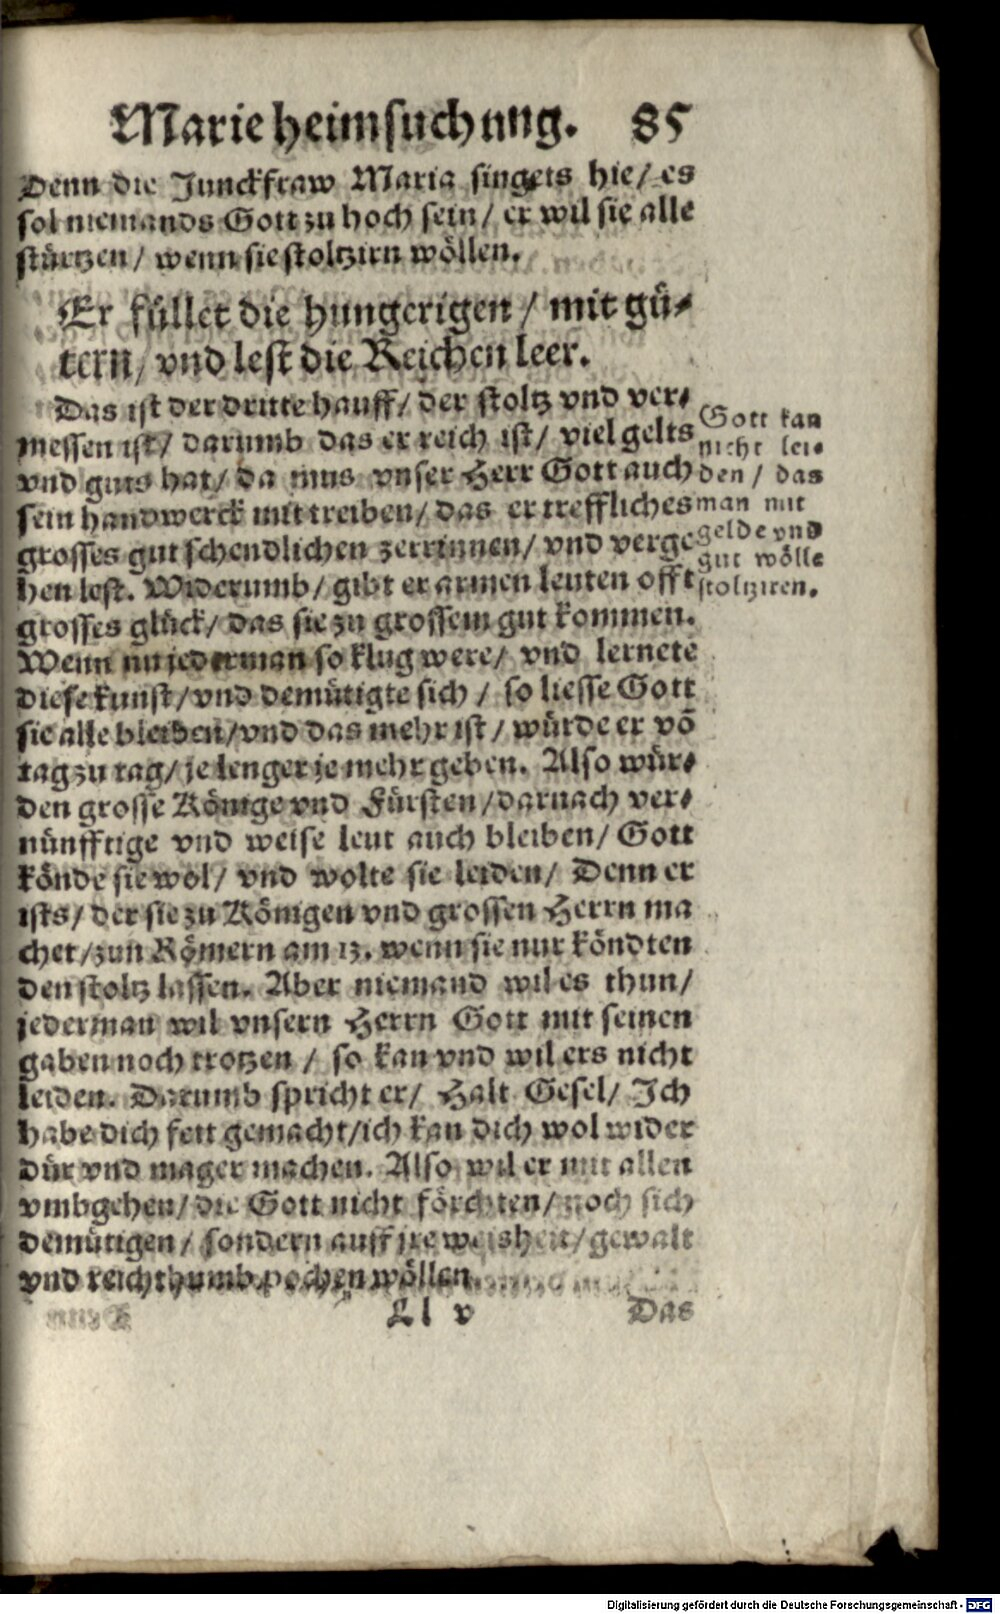 Marie heimsuchung. 85
Denn die Junckfraw Maria singets hie/ es
sol niemands Gott zu hoch sein/ er wil sie alle
stürtzen/ wenn sie stoltzirn wöllen.
Er füllet die hungerigen/ mit gü-
tern/ vnd lest die Reichen leer.
Das ist der dritte hauff/ der stoltz vnd ver-
messen ist/ darumb das er reich ist/ viel gelts
vnd guts hat/ da mus vnser Herr Gott auch
sein handwerck mit treiben/ das er treffliches
grosses gut schendlichen zerrinnen/ vnd verge
hen lest. Widerumb/ gibt er armen leuten offt
grosses glück/ das sie zu grossem gut kommen.
Wenn nu jederman so klug were/ vnd lernete
diese kunst/ vnd demütigte sich/ so liesse Gott
sie alle bleiben/ vnd das mehr ist/ würde er võ
tag zu tag/ je lenger je mehr geben. Also wür-
den grosse Könige vnd Fürsten/ darnach ver-
nünfftige vnd weise leut auch bleiben/ Gott
könde sie wol/ vnd wolte sie leiden/ Denn er
ists/ der sie zu Königen vnd grossen Herrn ma
chet/ zun Römern am 13. wenn sie nur köndten
den stoltz lassen. Aber niemand wil es thun/
jederman wil vnsern Herrn Gott mit seinen
gaben noch trotzen/ so kan vnd wil ers nicht
leiden. Darumb spricht er/ Halt Gesel/ Ich
habe dich fett gemacht/ ich kan dich wol wider
dür vnd mager machen. Also wil er mit allen
vmbgehen/ die Gott nicht förchten/ noch sich
demütigen/ sondern auff jre weisheit/ gewalt
vnd reichthumb pochen wöllen.
Ll v Das
Gott kan
nicht lei-
den/ das
man mit
gelde vnd
gut wölle
stoltziren.
Digitalisierung gefördert durch die Deutsche Forschungsgemeinschaft - DFG